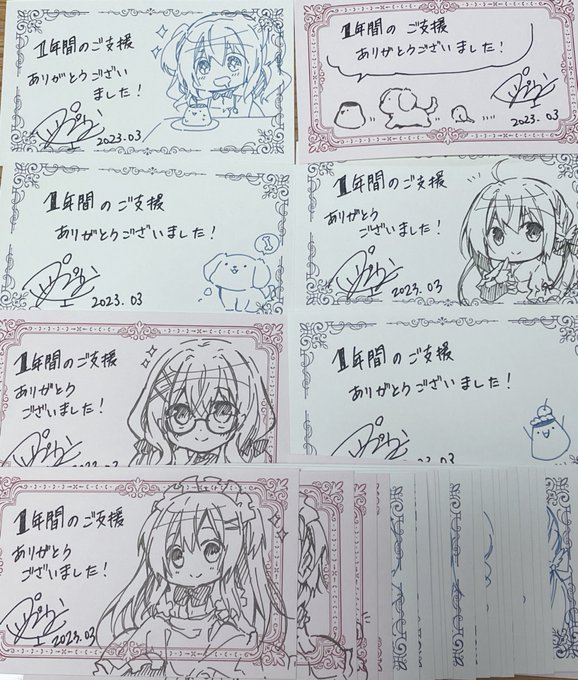 1年間のご支援
ありがとうござい
ました!
2023.03
1年間のご支援
ありがとうございました!
2023.03
1年間のご支援
ありがとうございました!
2023.03
1年間のご支援
ありがとう
ございました!
2023.03
1年間のご支援
ありがとう
ございました!
1年間のご支援
ありがとうございました!
1年間のご支援
ありがとう
ございました!
2023.03